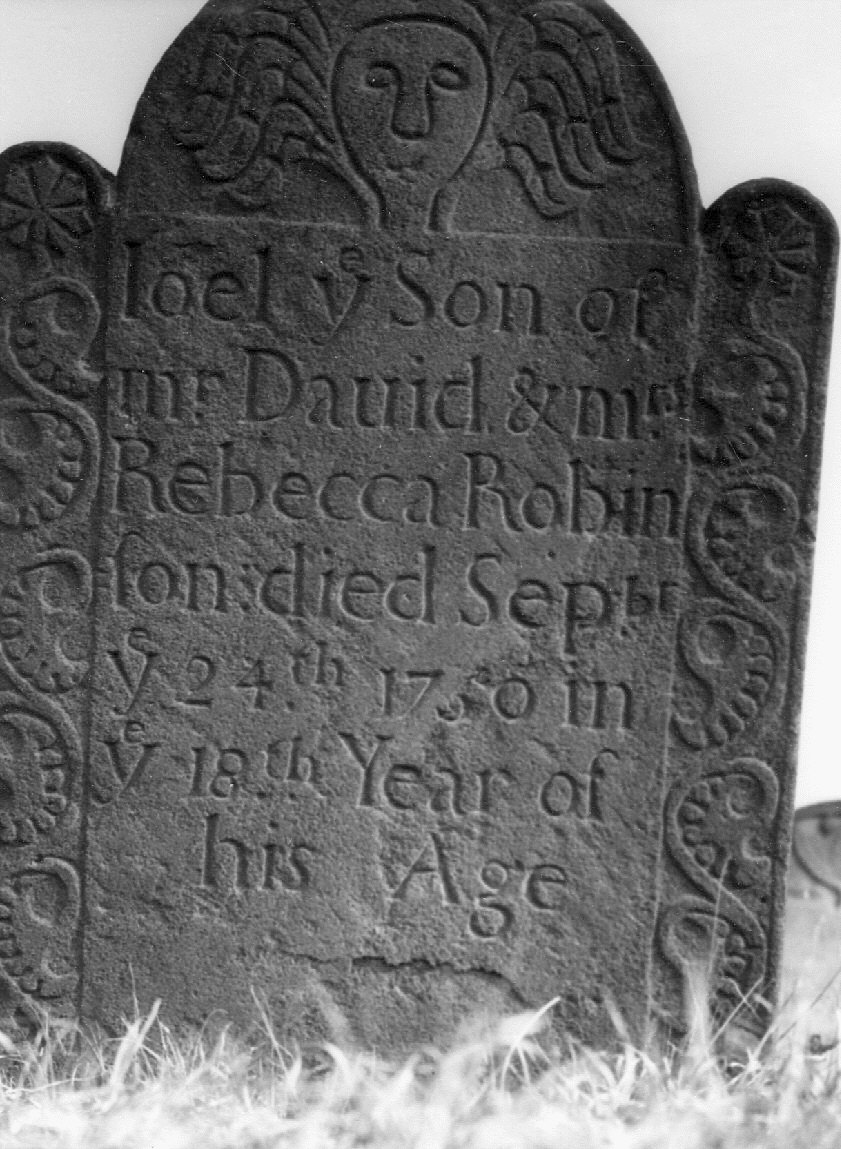 Ioel yᵉ Son of
mr Dauid & mrs
Rebecca Robin
ſon died Sepbr
yᵉ 24th 1750 in
yᵉ 18th Year of
his Age